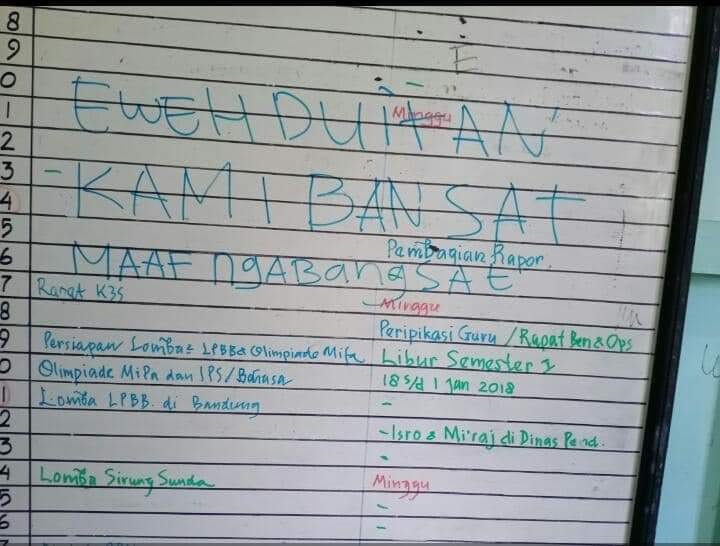 8
9 E
0
1 EWEH DUITAN Minggu
2
3 -KAMI BANSAT
4
5
6 MAAF ngABangSAt Pembagian Rapor.
7 Rapat K3S
8 Minggu
9 Persiapan Lomba2 LPBB & Olimpiade Mifa Peripikasi Guru / Rapat Ben & Ops
0 Olimpiade MiPa dan IPS/Bahasa Libur Semester I
1 Lomba LPBB. di Bandung 18 s/d 1 Jan 2018
2 -
3 -Isro & Mi'raj di Dinas Pend.
4 Lomba Sirung Sunda Minggu
5 -
6 -